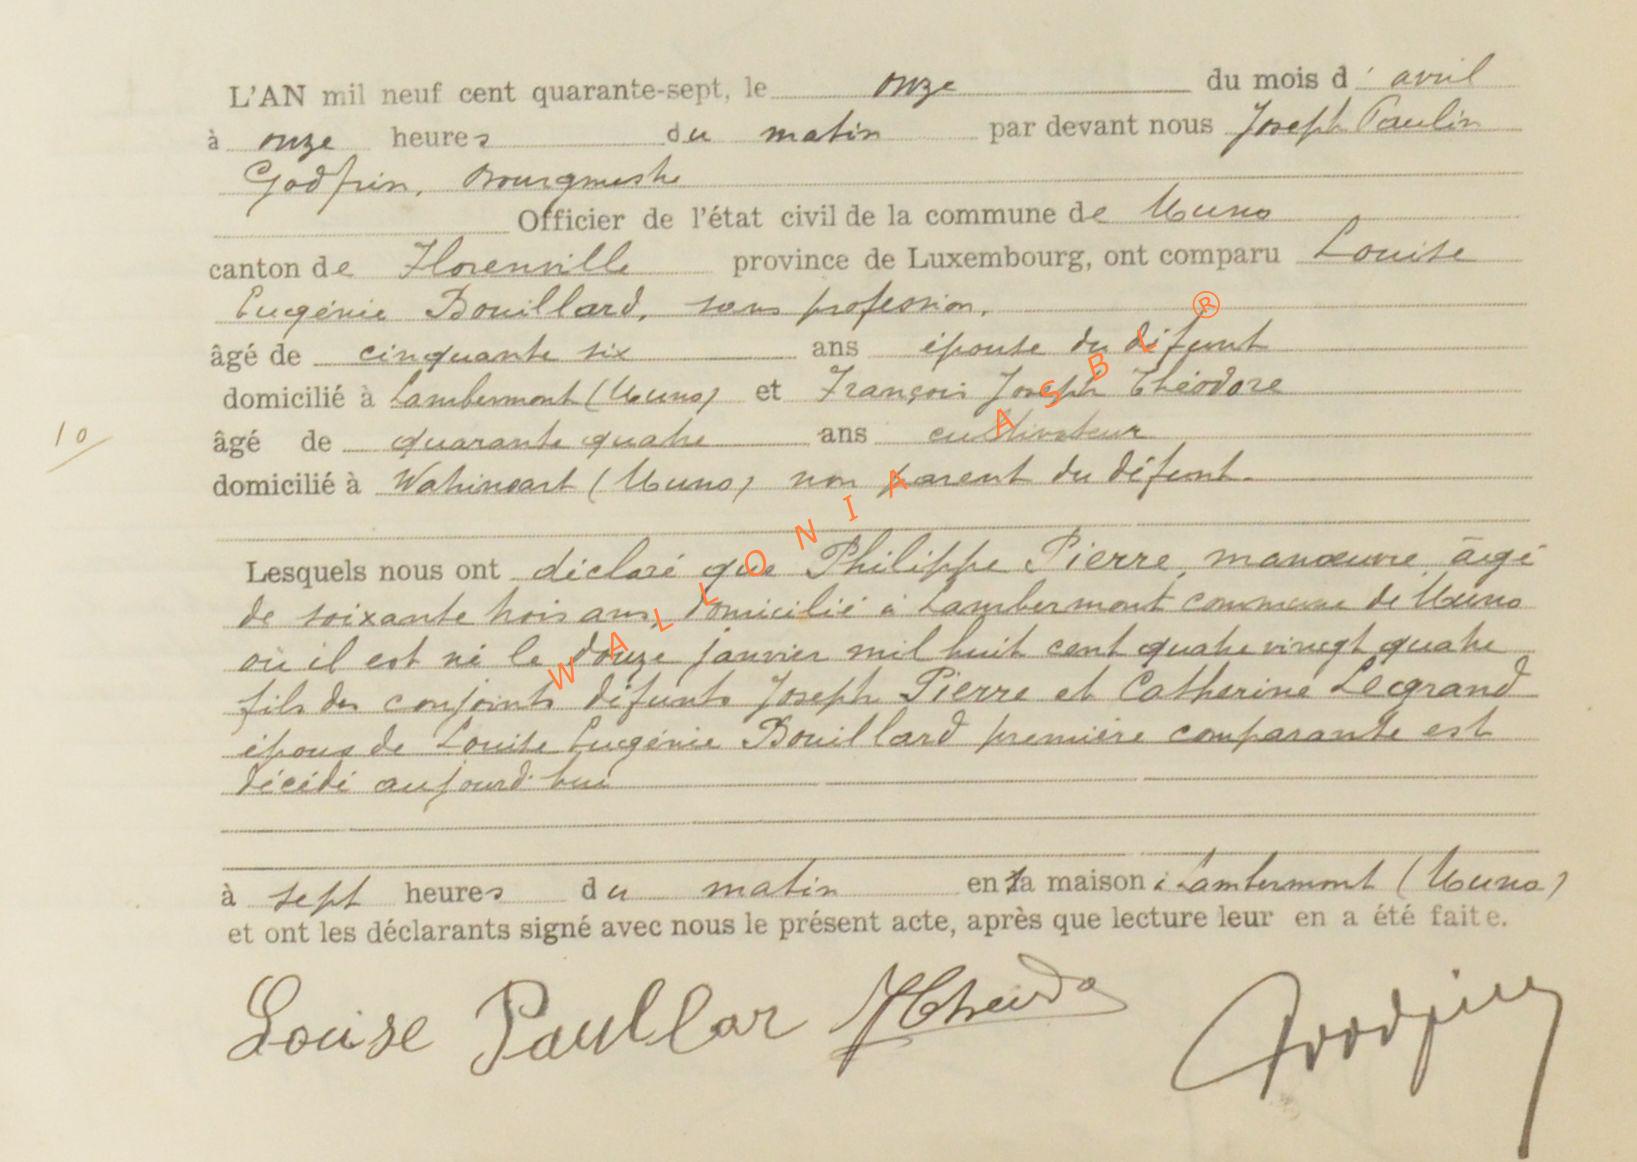 L'AN mil neuf cent quarante-sept, le onze du mois d' avril
à onze heures du matin par devant nous Joseph Paulin
Godfrin, Bourgmestre
Officier de l'état civil de la commune de Muno
canton de Florenville province de Luxembourg, ont comparu Louise
Eugénie Bouillard, sans profession,
âgé de cinquante six ans épouse du défunt
domicilié à Lambermont (Muno) et François Joseph Théodore
âgé de quarante quatre ans cultivateur
10
domicilié à Watrinsart (Muno) non parent du défunt.
Lesquels nous ont déclaré que Philippe Pierre, manœuvre, âgé
de soixante trois ans, domicilié à Lambermont commune de Muno
où il est né le douze janvier mil huit cent quatre vingt quatre
fils des conjoints défunts Joseph Pierre et Catherine Legrand
époux de Louise Eugénie Bouillard première comparante est
décédé aujourd'hui
à sept heures du matin en sa maison à Lambermont (Muno)
et ont les déclarants signé avec nous le présent acte, après que lecture leur en a été faite.
Louise Godfrin
WALLONIA ASBL ®